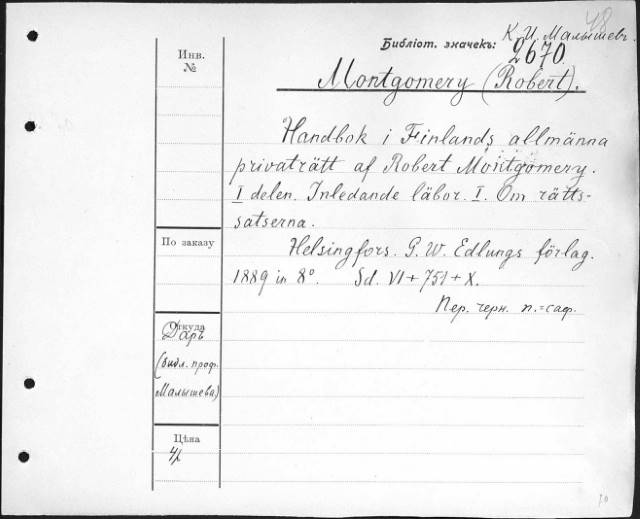 48
К. И. Малышевъ
Библіот. значекъ: 2670.
Инв. №
Montgomery (Robert).
Handbok i Finlands allmänna
privaträtt af Robert Montgomery.
I delen. Inledande läbor. I. Om rätts-
satserna.
По заказу
Helsingfors. G. W. Edlungs förlag.
1889 in 8°. Sd. VI + 751 + X.
Пер. черн. п.=саф.
Откуда
Даръ
(библ. проф.
Малышева)
Цѣна